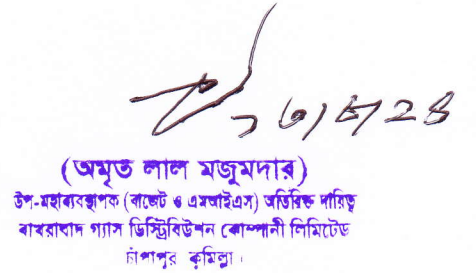 ১৩/৮/২৪
(অমৃত লাল মজুমদার)
উপ-মহাব্যবস্থাপক (বাজেট ও এমআইএস) অতিরিক্ত দায়িত্ব
বাখরাবাদ গ্যাস ডিস্ট্রিবিউশন কোম্পানী লিমিটেড
চাঁপাপুর কুমিল্লা।